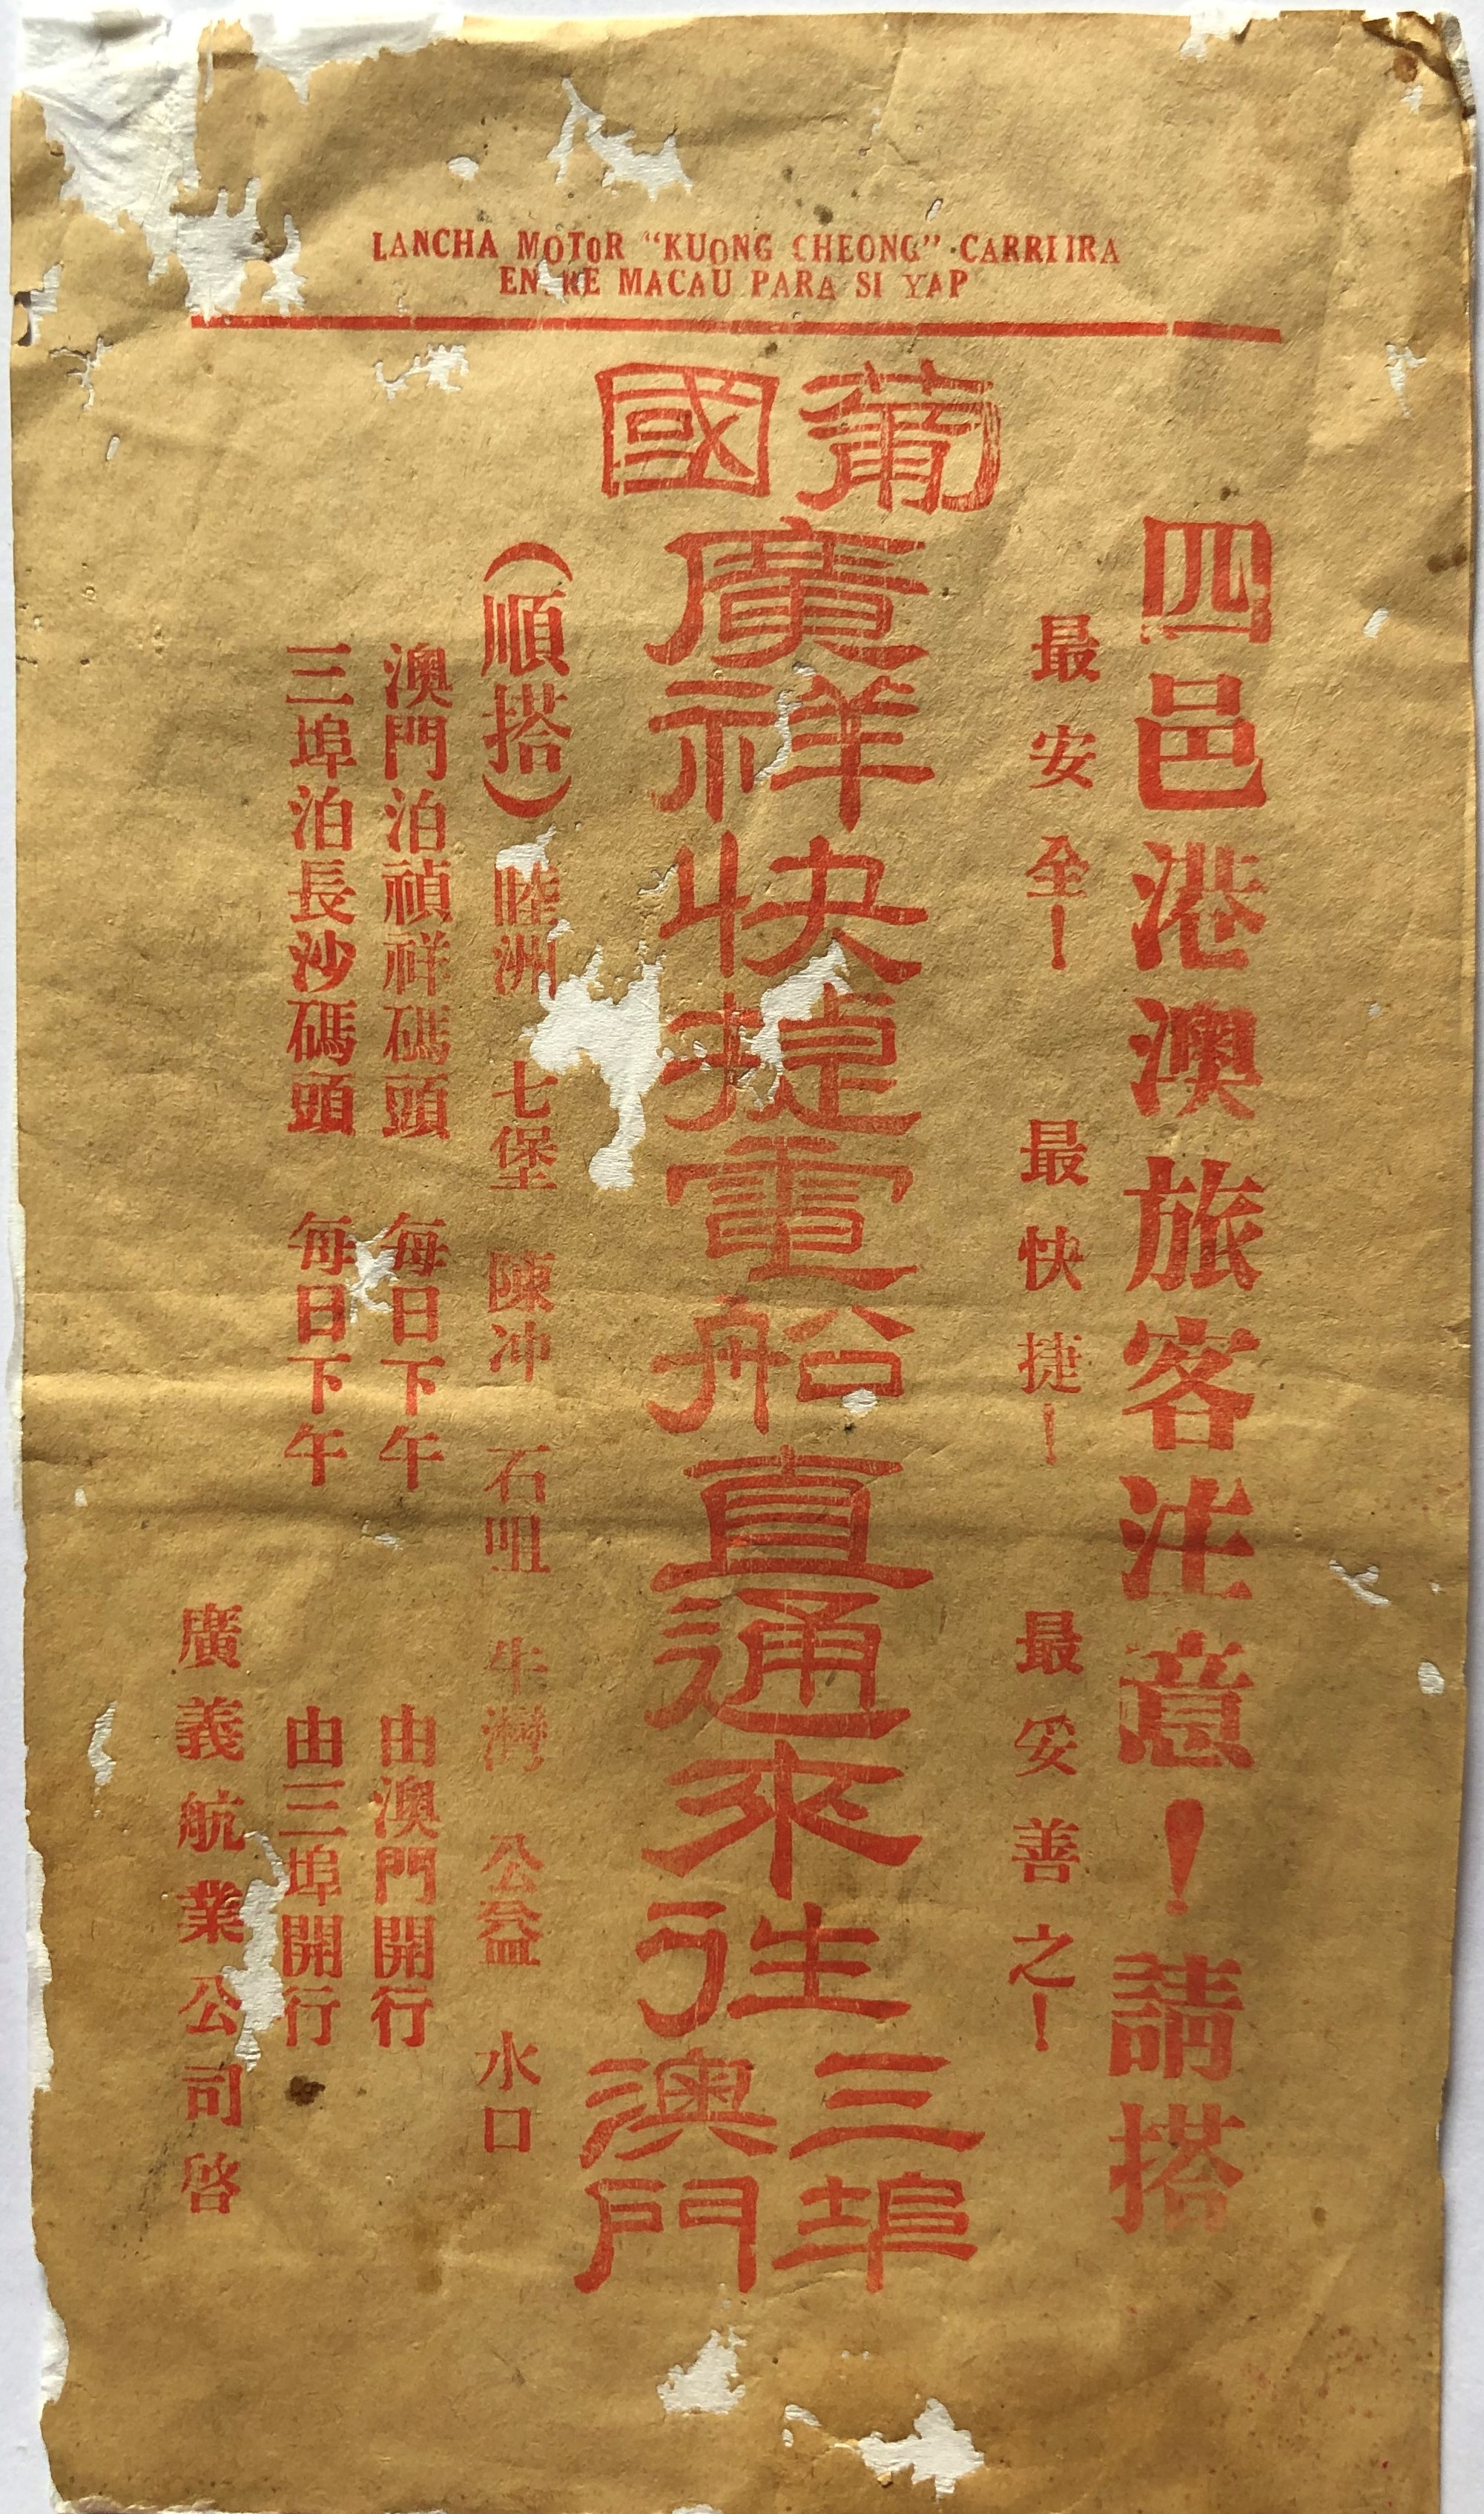 LANCHA MOTOR “KUONG CHEONG” CARRIIRA
EN RE MACAU PARA SI YAP
四邑港澳旅客注意！請搭
最安全！ 最快捷！ 最妥善之！
葡國
廣祥快捷電船直通來往三埠澳門
（順搭）睦洲 七堡 陳冲 石咀 牛灣 公益 水口
澳門泊禎祥碼頭 每日下午 由澳門開行
三埠泊長沙碼頭 每日下午 由三埠開行
廣義航業公司啓